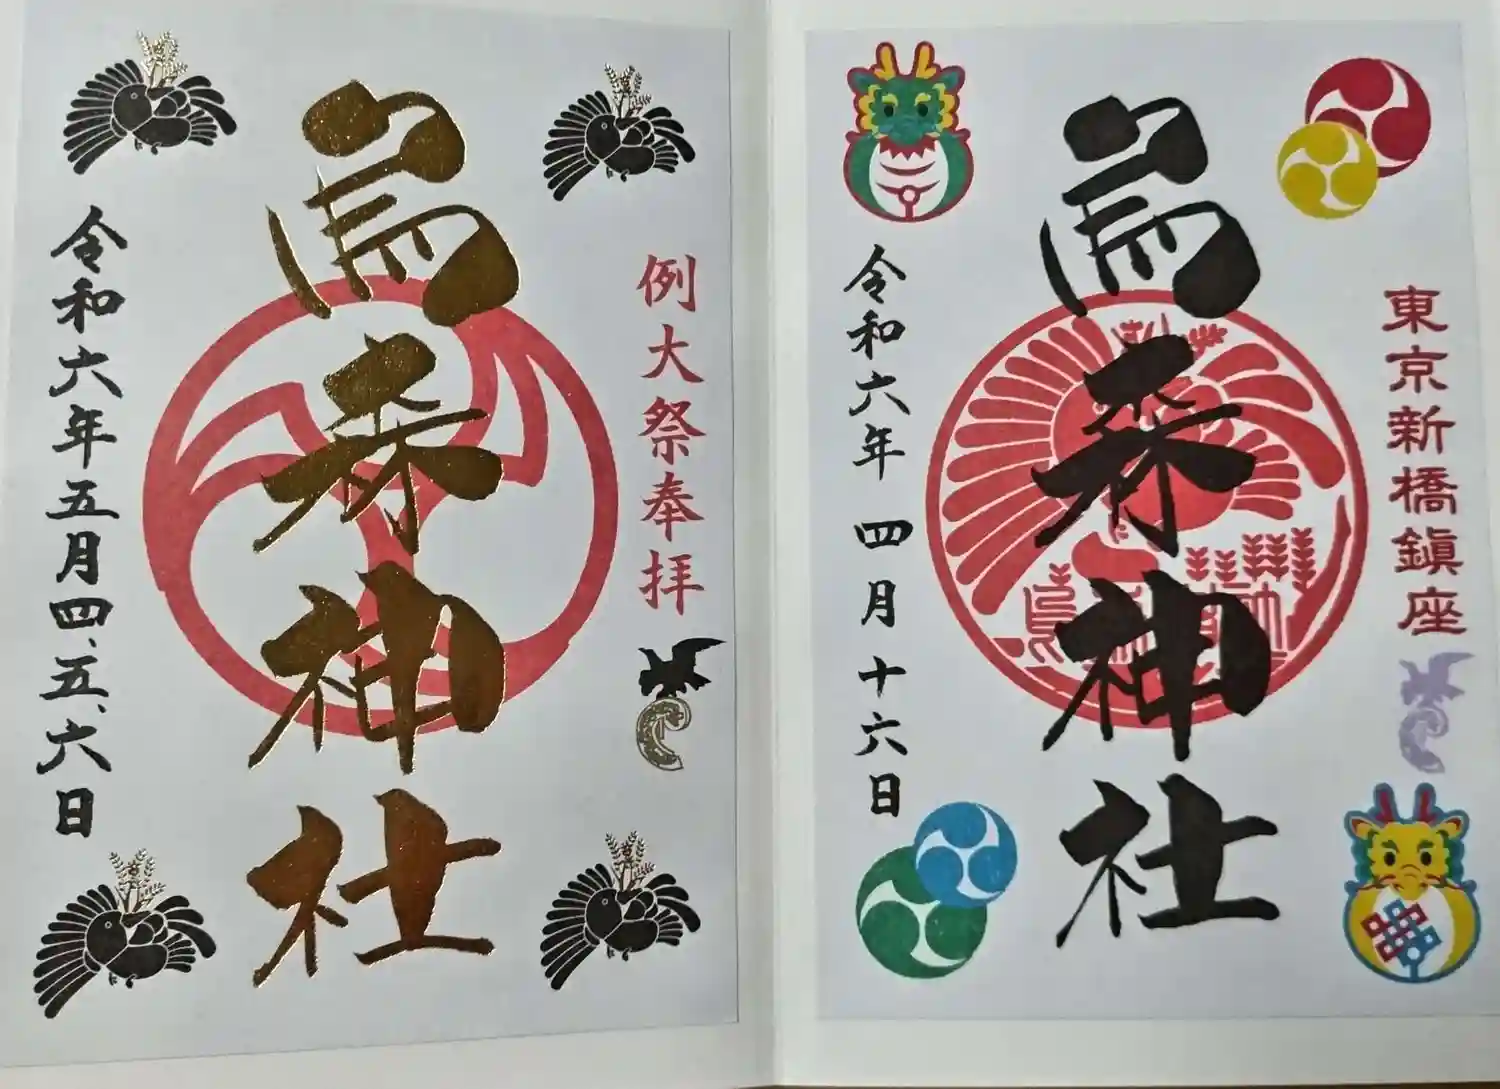 東京新橋鎭座
烏森神社
令和六年四月十六日
例大祭奉拝
烏森神社
令和六年五月四、五、六日